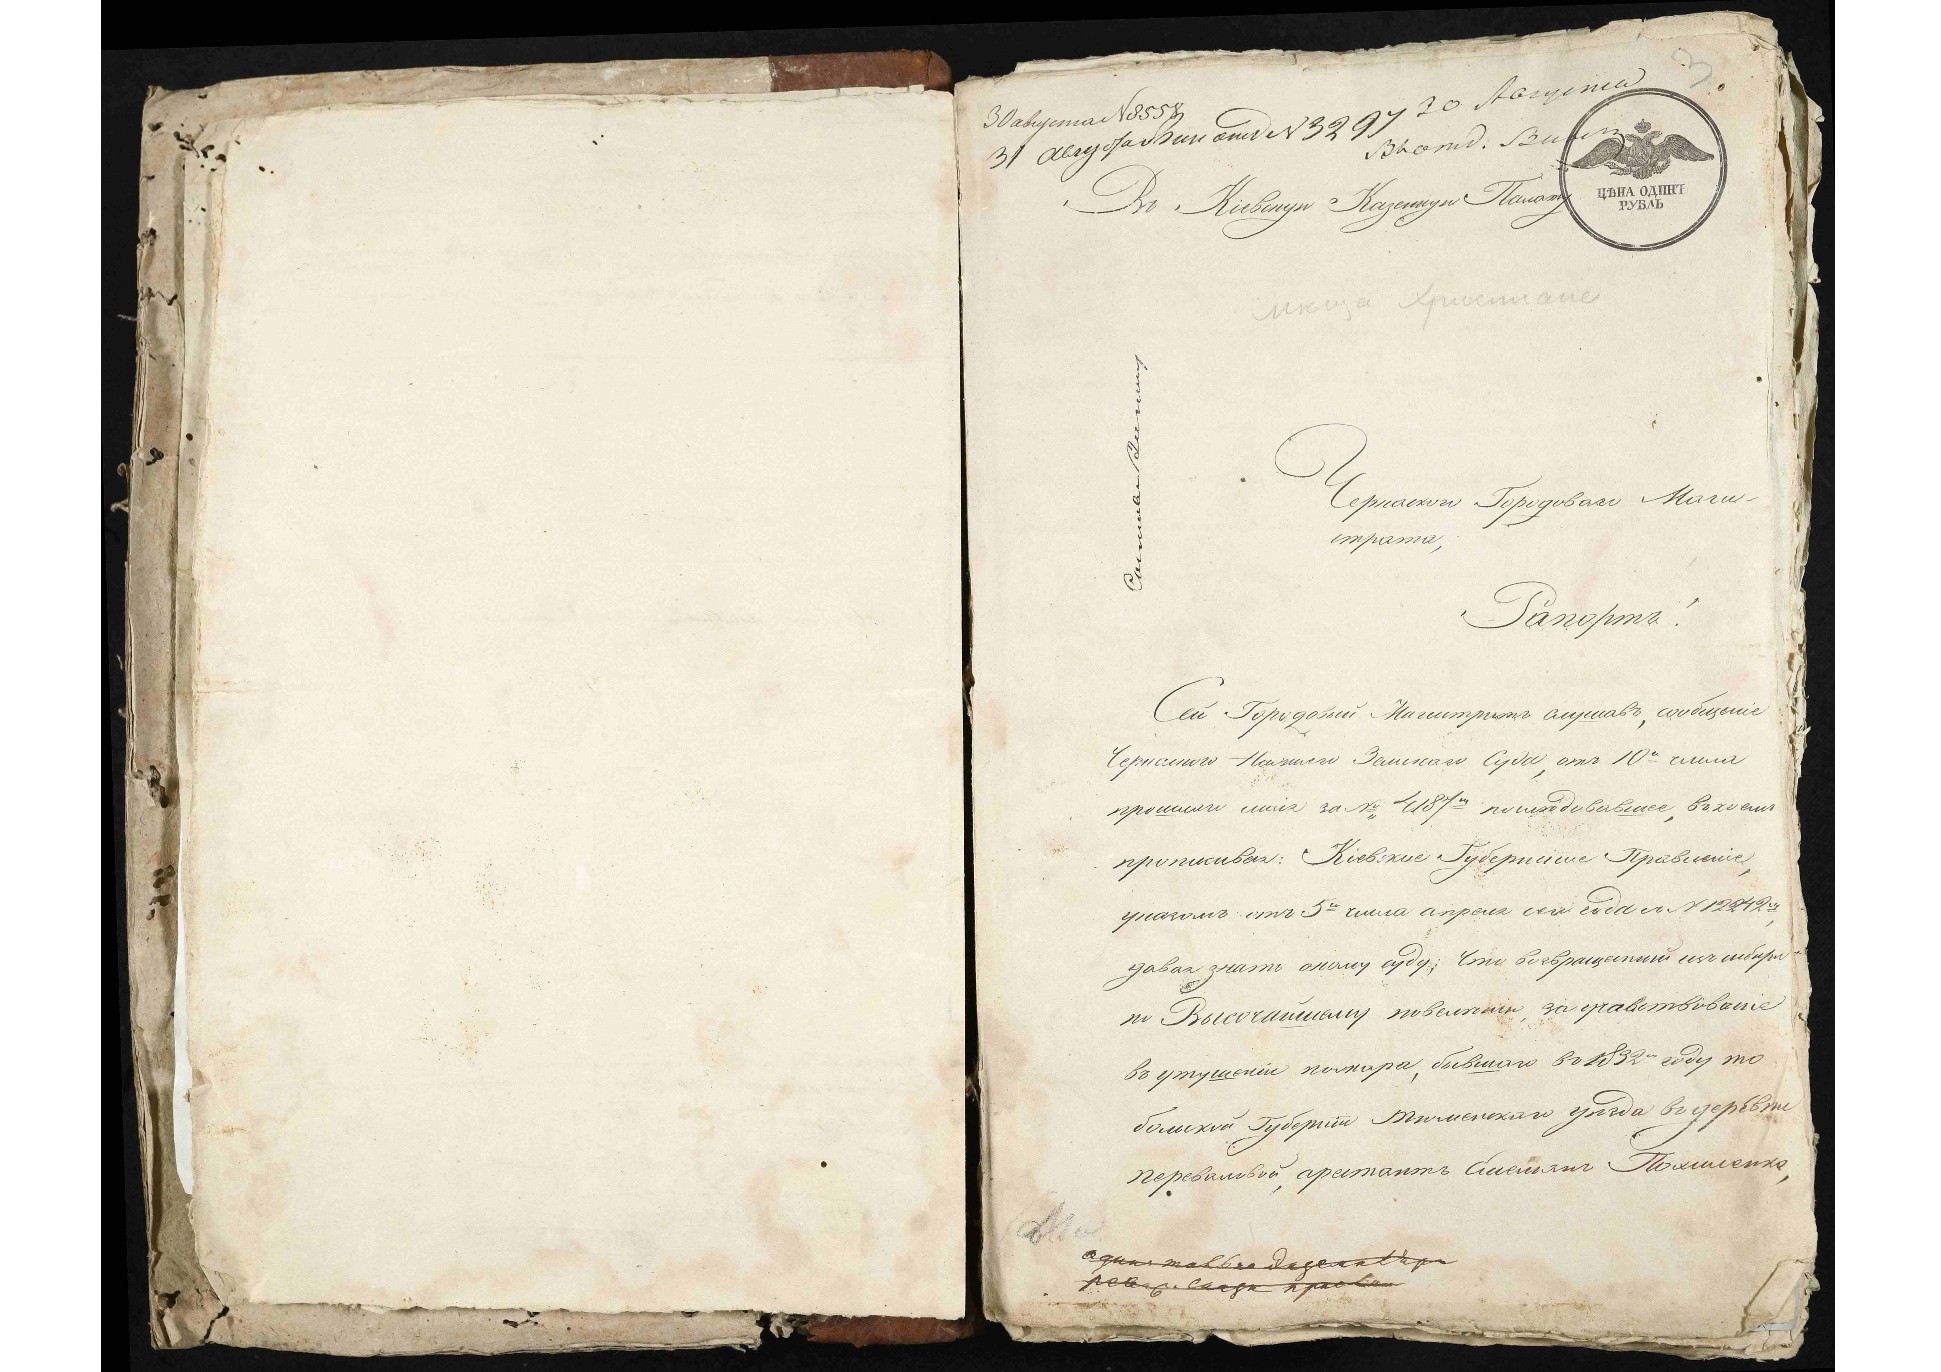 3
30 августа №8558
20 Августа
31 августа отд №3297
ЦѢНА ОДИНЪ
РУБЛЬ
Въ Кіевскую Казенную Палату
мѣща Християне
Черкаского Городоваго Маги-
страта,
Рапортъ!
Сей Городовый Магистратъ слушавъ, сообщеніе
Черкаского Нижняго Земскаго Суда, отъ 10го числа
прошлаго мая за № 4187м последовавшее, въ коемъ
прописывая: Кіевское Губернское Правленіе,
указомъ отъ 5го числа апреля сего года за №12242м,
давая знать оному суду; что возвращенный изъ сибири
по Высочайшему повелению, за участвованіе
въ утушеніи пожара, бывшаго въ 1832м году то
больской Губерніи Тюменскаго уезда въ деревне
Переваловой, арестантъ Емельянъ Похиленко,